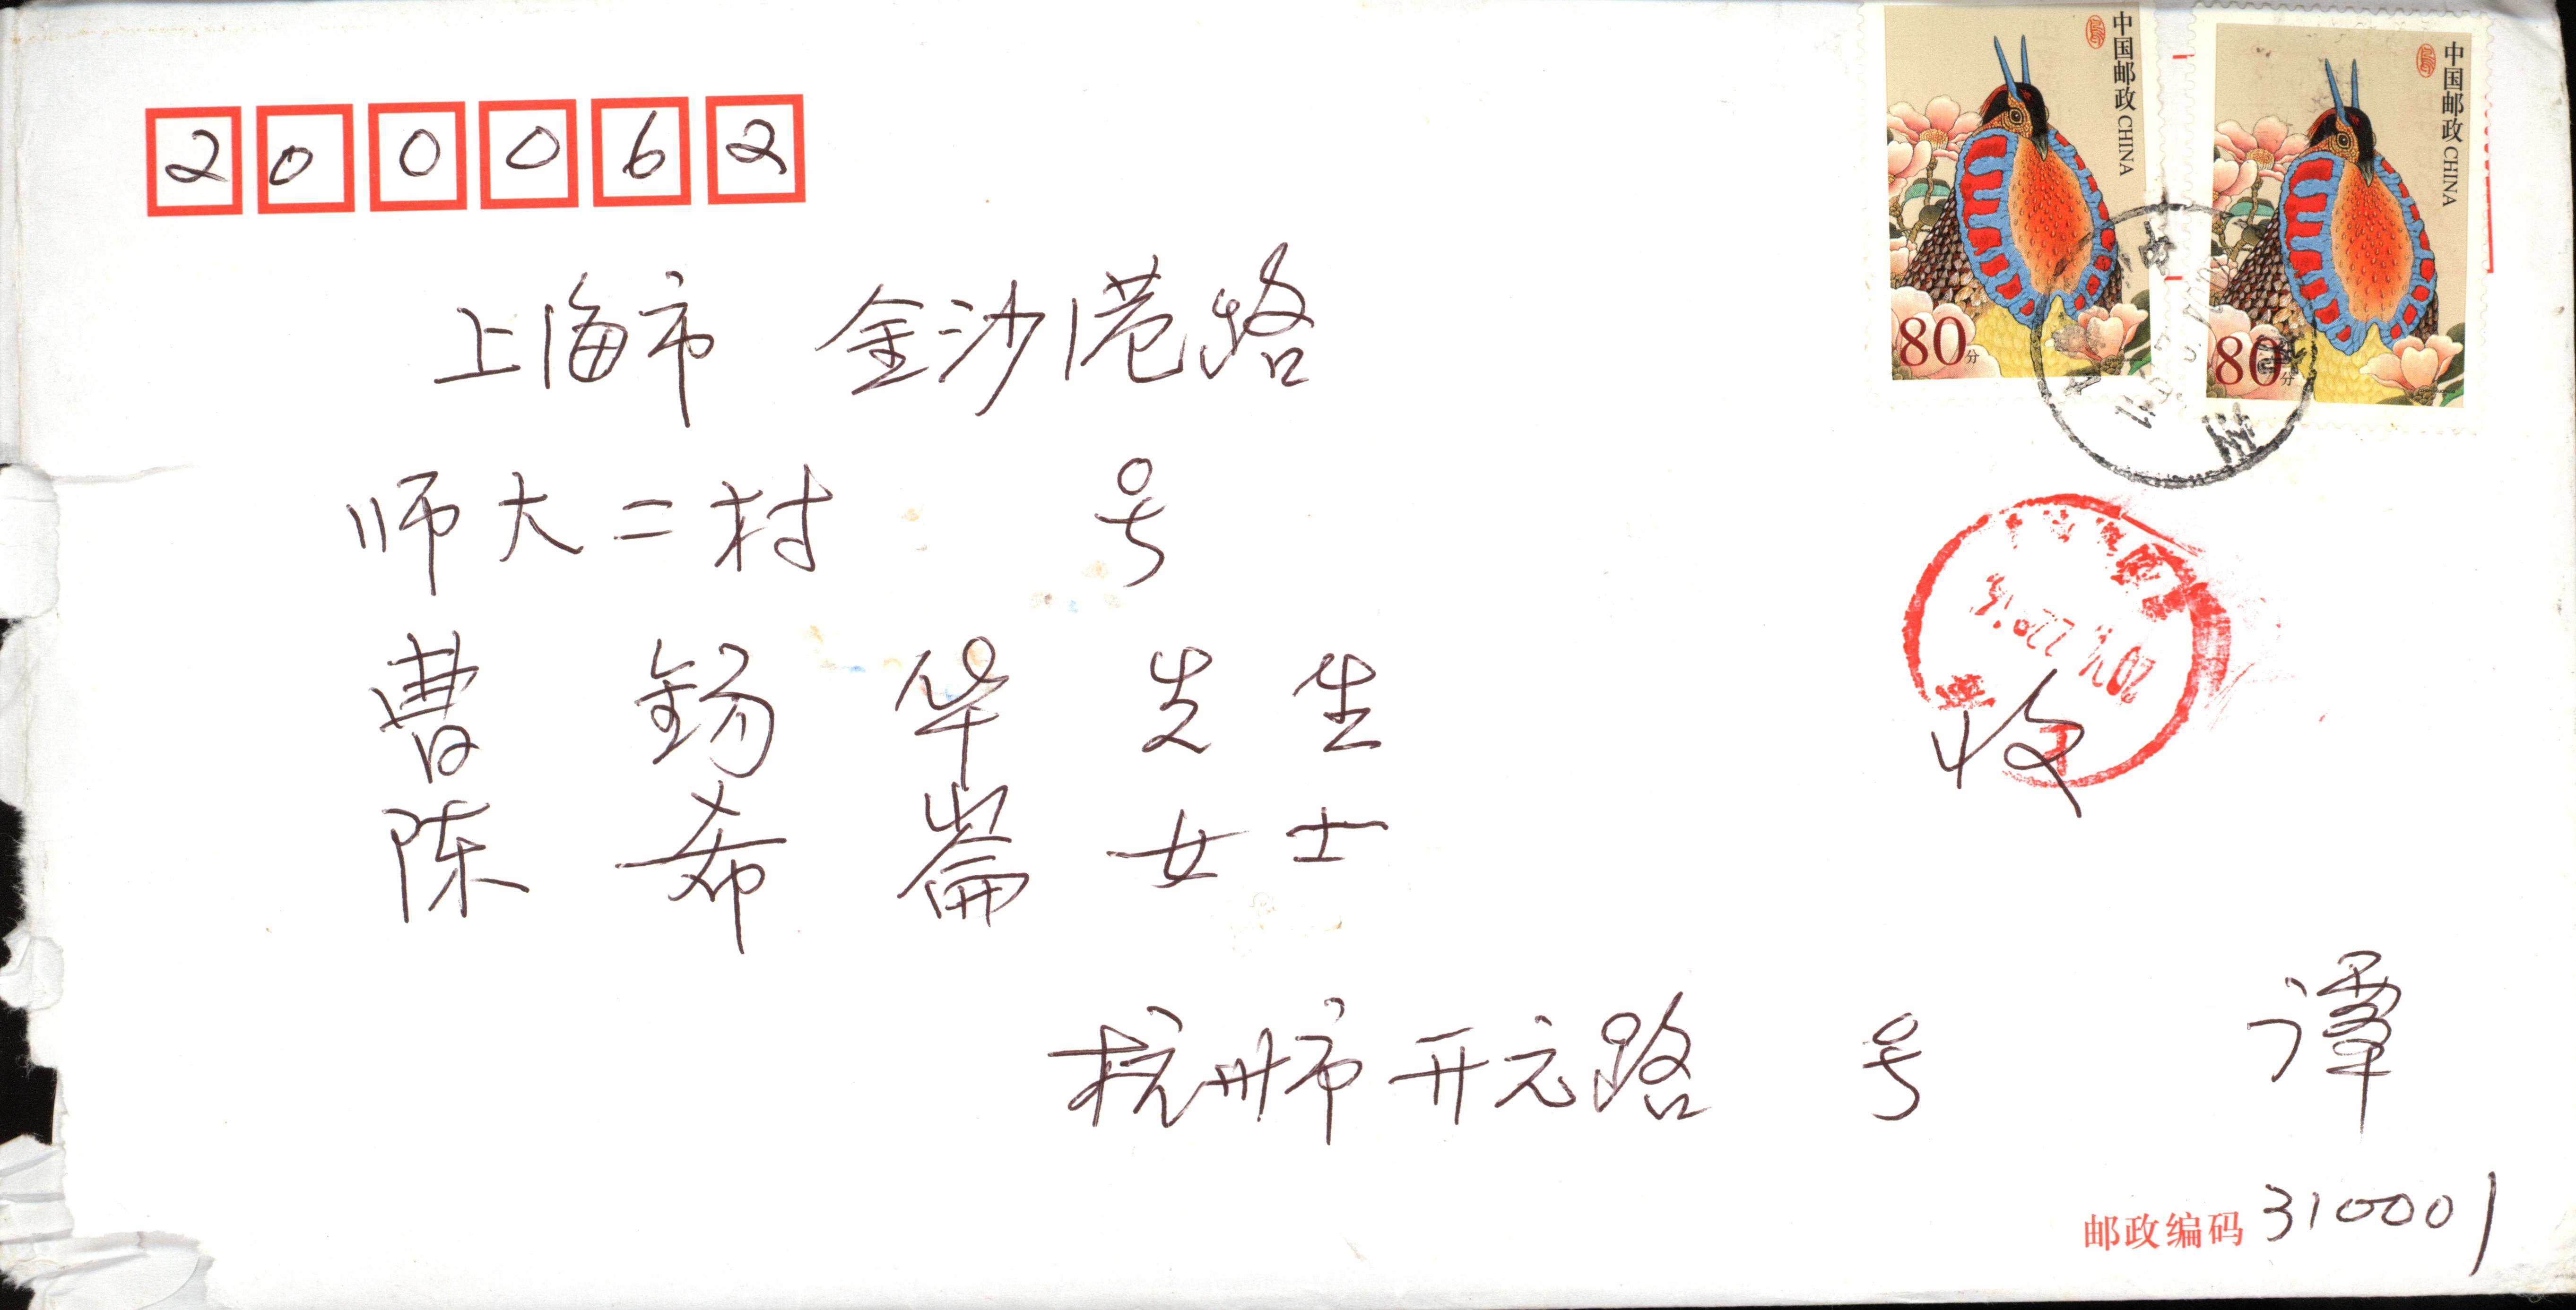 中国邮政 CHINA
80分
中国邮政 CHINA
80分
200062
上海市 金沙港路
师大二村 号
曹 锡 华 先 生
收
陈 希 崙 女 士
杭州市开元路 号 谭
邮政编码 310001